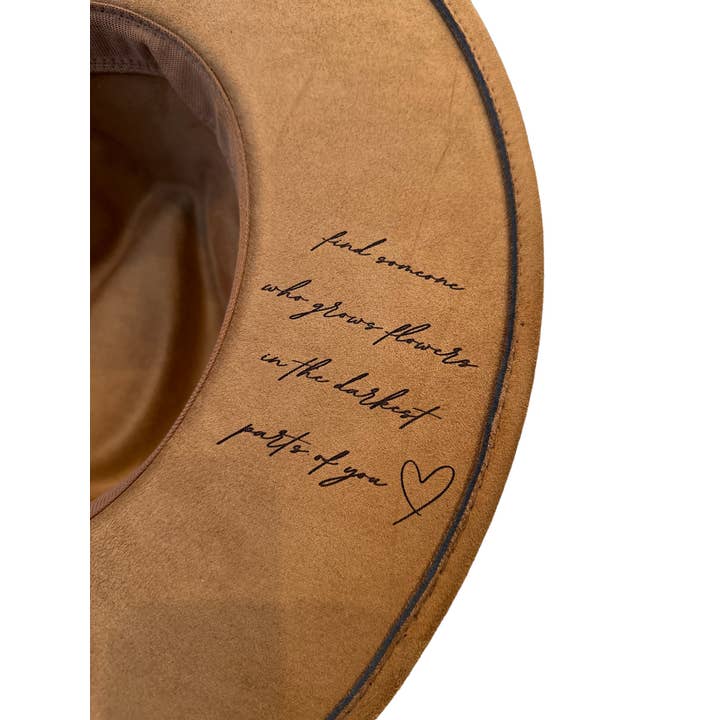 find someone
who grows flowers
in the darkest
parts of you